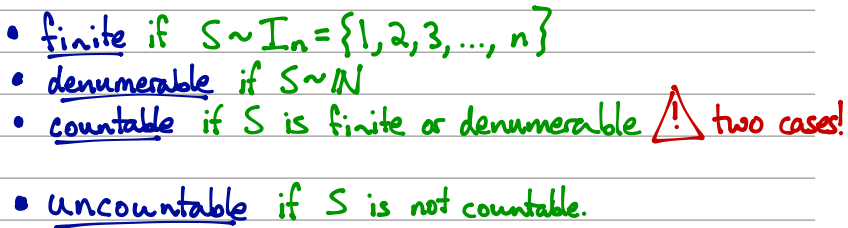 • finite if S ~ Iₙ = {1, 2, 3, ..., n}
• denumerable if S ~ ℕ
• countable if S is finite or denumerable ⚠ two cases!
• uncountable if S is not countable.